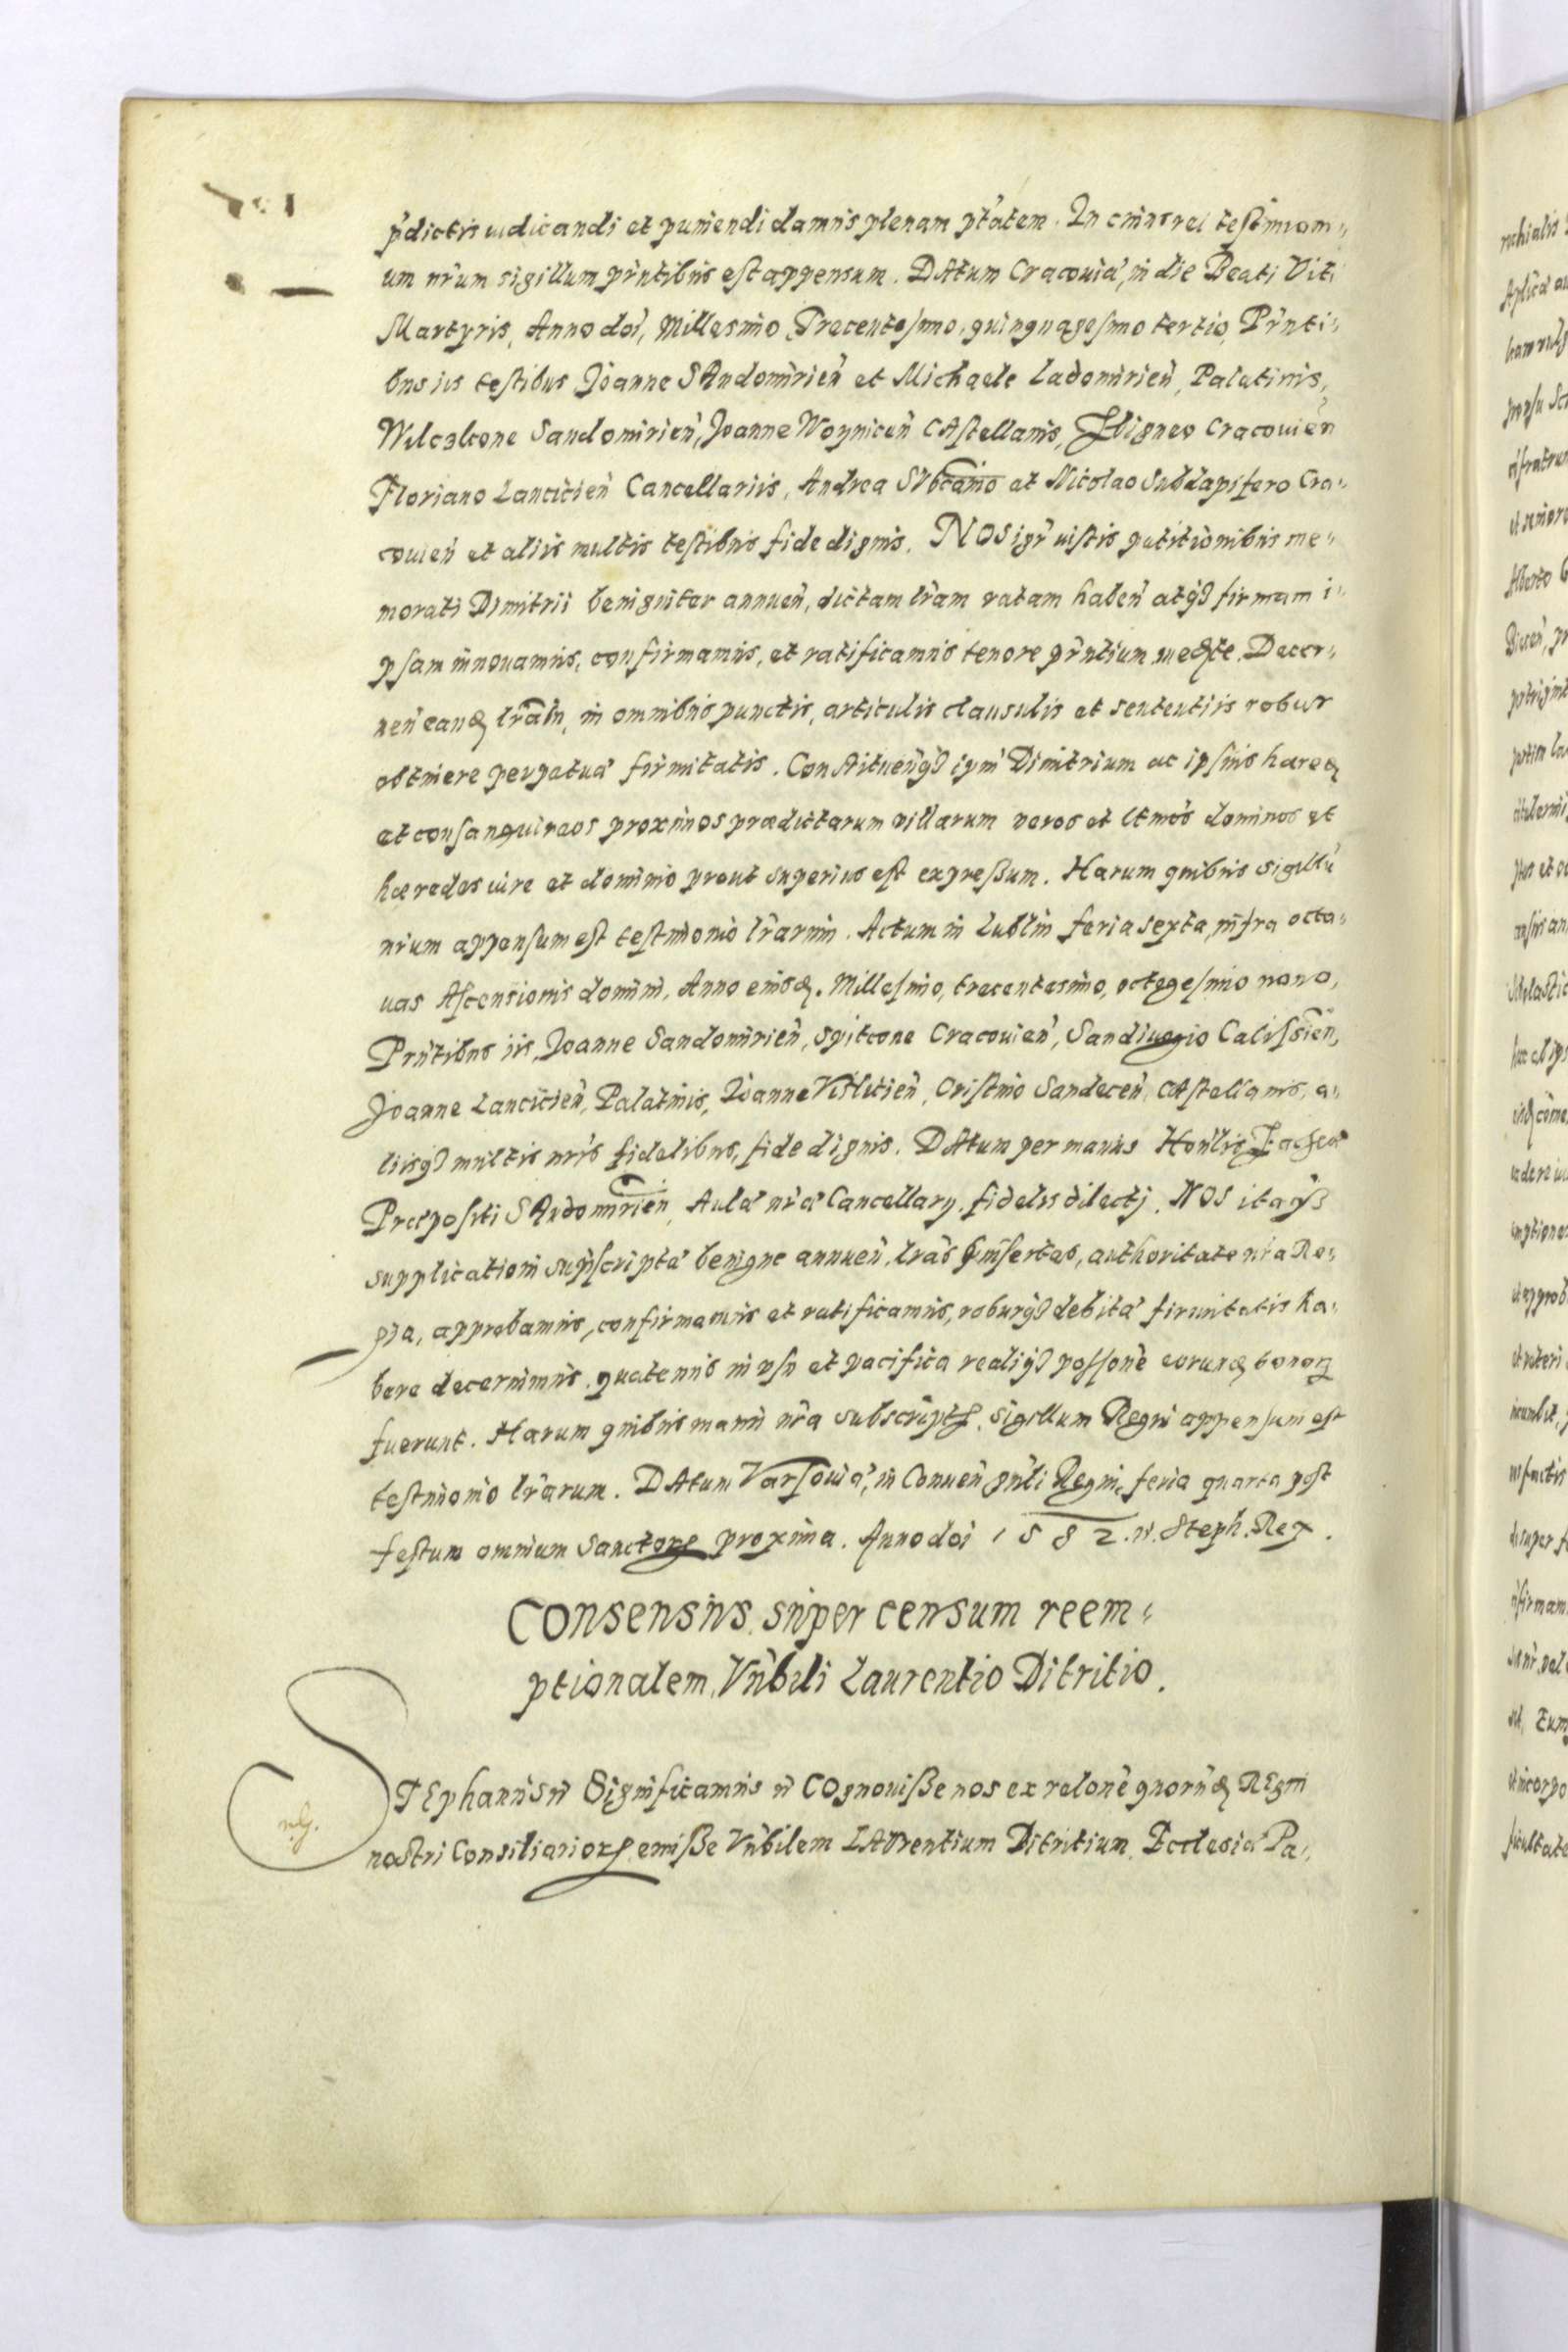 p̃dictis iudicandi et puniendi damus plenam ptãtem. In cuius rei testimoni„
um nr̃um sigillum pr̃ntibus est appensum. DAtum Cracouiæ, in die Beati Viti
Martyris, Anno doi, Millesimo, Trecentesimo, quinquagesimo tertio, Pr̃nti„
bus iis testibus Joanne SAndomirień et Michaele Ladomirień, Palatinis,
Wilczkone Sandomirień, Joanne Woyniceń CAstellanis, Zbigneo Cracouień
Floriano Lancicień Cancellariis, Andrea SVbcamo et Nicolao Subdapifero Cra„
couień et aliis multis testibus fide dignis. NOS igr̃ iustis petitionibus me„
morati Dimitrii benigniter annueń, dictam lr̃am ratam habeń atq3 firmam i„
psam innouamus, confirmamus, et ratificamus tenore pr̃ntium mediãte. Decer„
neń eandę lr̃am, in omnibus punctis, articulis clausulis et sententiis robur
obtinere perpetuæ firmitatis. Constitueńq3 ipm̃ Dimitrium ac ipsius haredę
et consanguineos proximos prædictarum villarum veros et ltmos dominos et
hæredes iure et dominio prout superius est expreßum. Harum quibus sigillũ
nr̃um appensum est testimonio lr̃arum. Actum in Lublin feria sexta, infra octa„
uas Ascensionis domini, Anno eiusdę. Millesimo, trecentesimo, octogesimo nono,
Pr̃ntibus iis, Joanne Sandomirień, Spitcone Cracouień, Sandiuogio Calissień,
Joanne Lancicień, Palatinis, Joanne Vislicień, Cristino Sandeceń, CAstellanis, a„
liisq3 multis nr̃is fidelibus, fide dignis. DAtum per manus Hon̄lis Zacleæ
Præpositi SAndomirień, Aulæ nr̃æ Cancellary, fidelis dilectj. NOS itaq3
supplicationi suprascriptæ benigne annueń, lr̃as p̃insertas, authoritate nr̃a Re„
gia, approbamus, confirmamus et ratificamus, roburq3 debitæ firmitatis ha„
bere decernimus, quatenus in vsu et pacifica realiq3 possone eorundę bonorꝝ
fuerunt. Harum quibus manu nr̃a subscriptꝭ, sigillum Regni appensum est
testimonio lr̃arum. DAtum Varsouiæ, in Conueń gn̄li Regni, feria quarta post
festum omnium Sanctorꝝ proxima. Anno doi 1582. ń. Steph. Rex.
COnsensus super censum reem„
ptionalem, Vn̄bili Laurentio Ditritio.
STEphanus ń Significamus ń COgnouiße nos ex relone quorundę REgni
nostri Consiliariorꝝ emiße Vn̄bilem LAVrentium Ditritium, Ecclesiæ Pa„